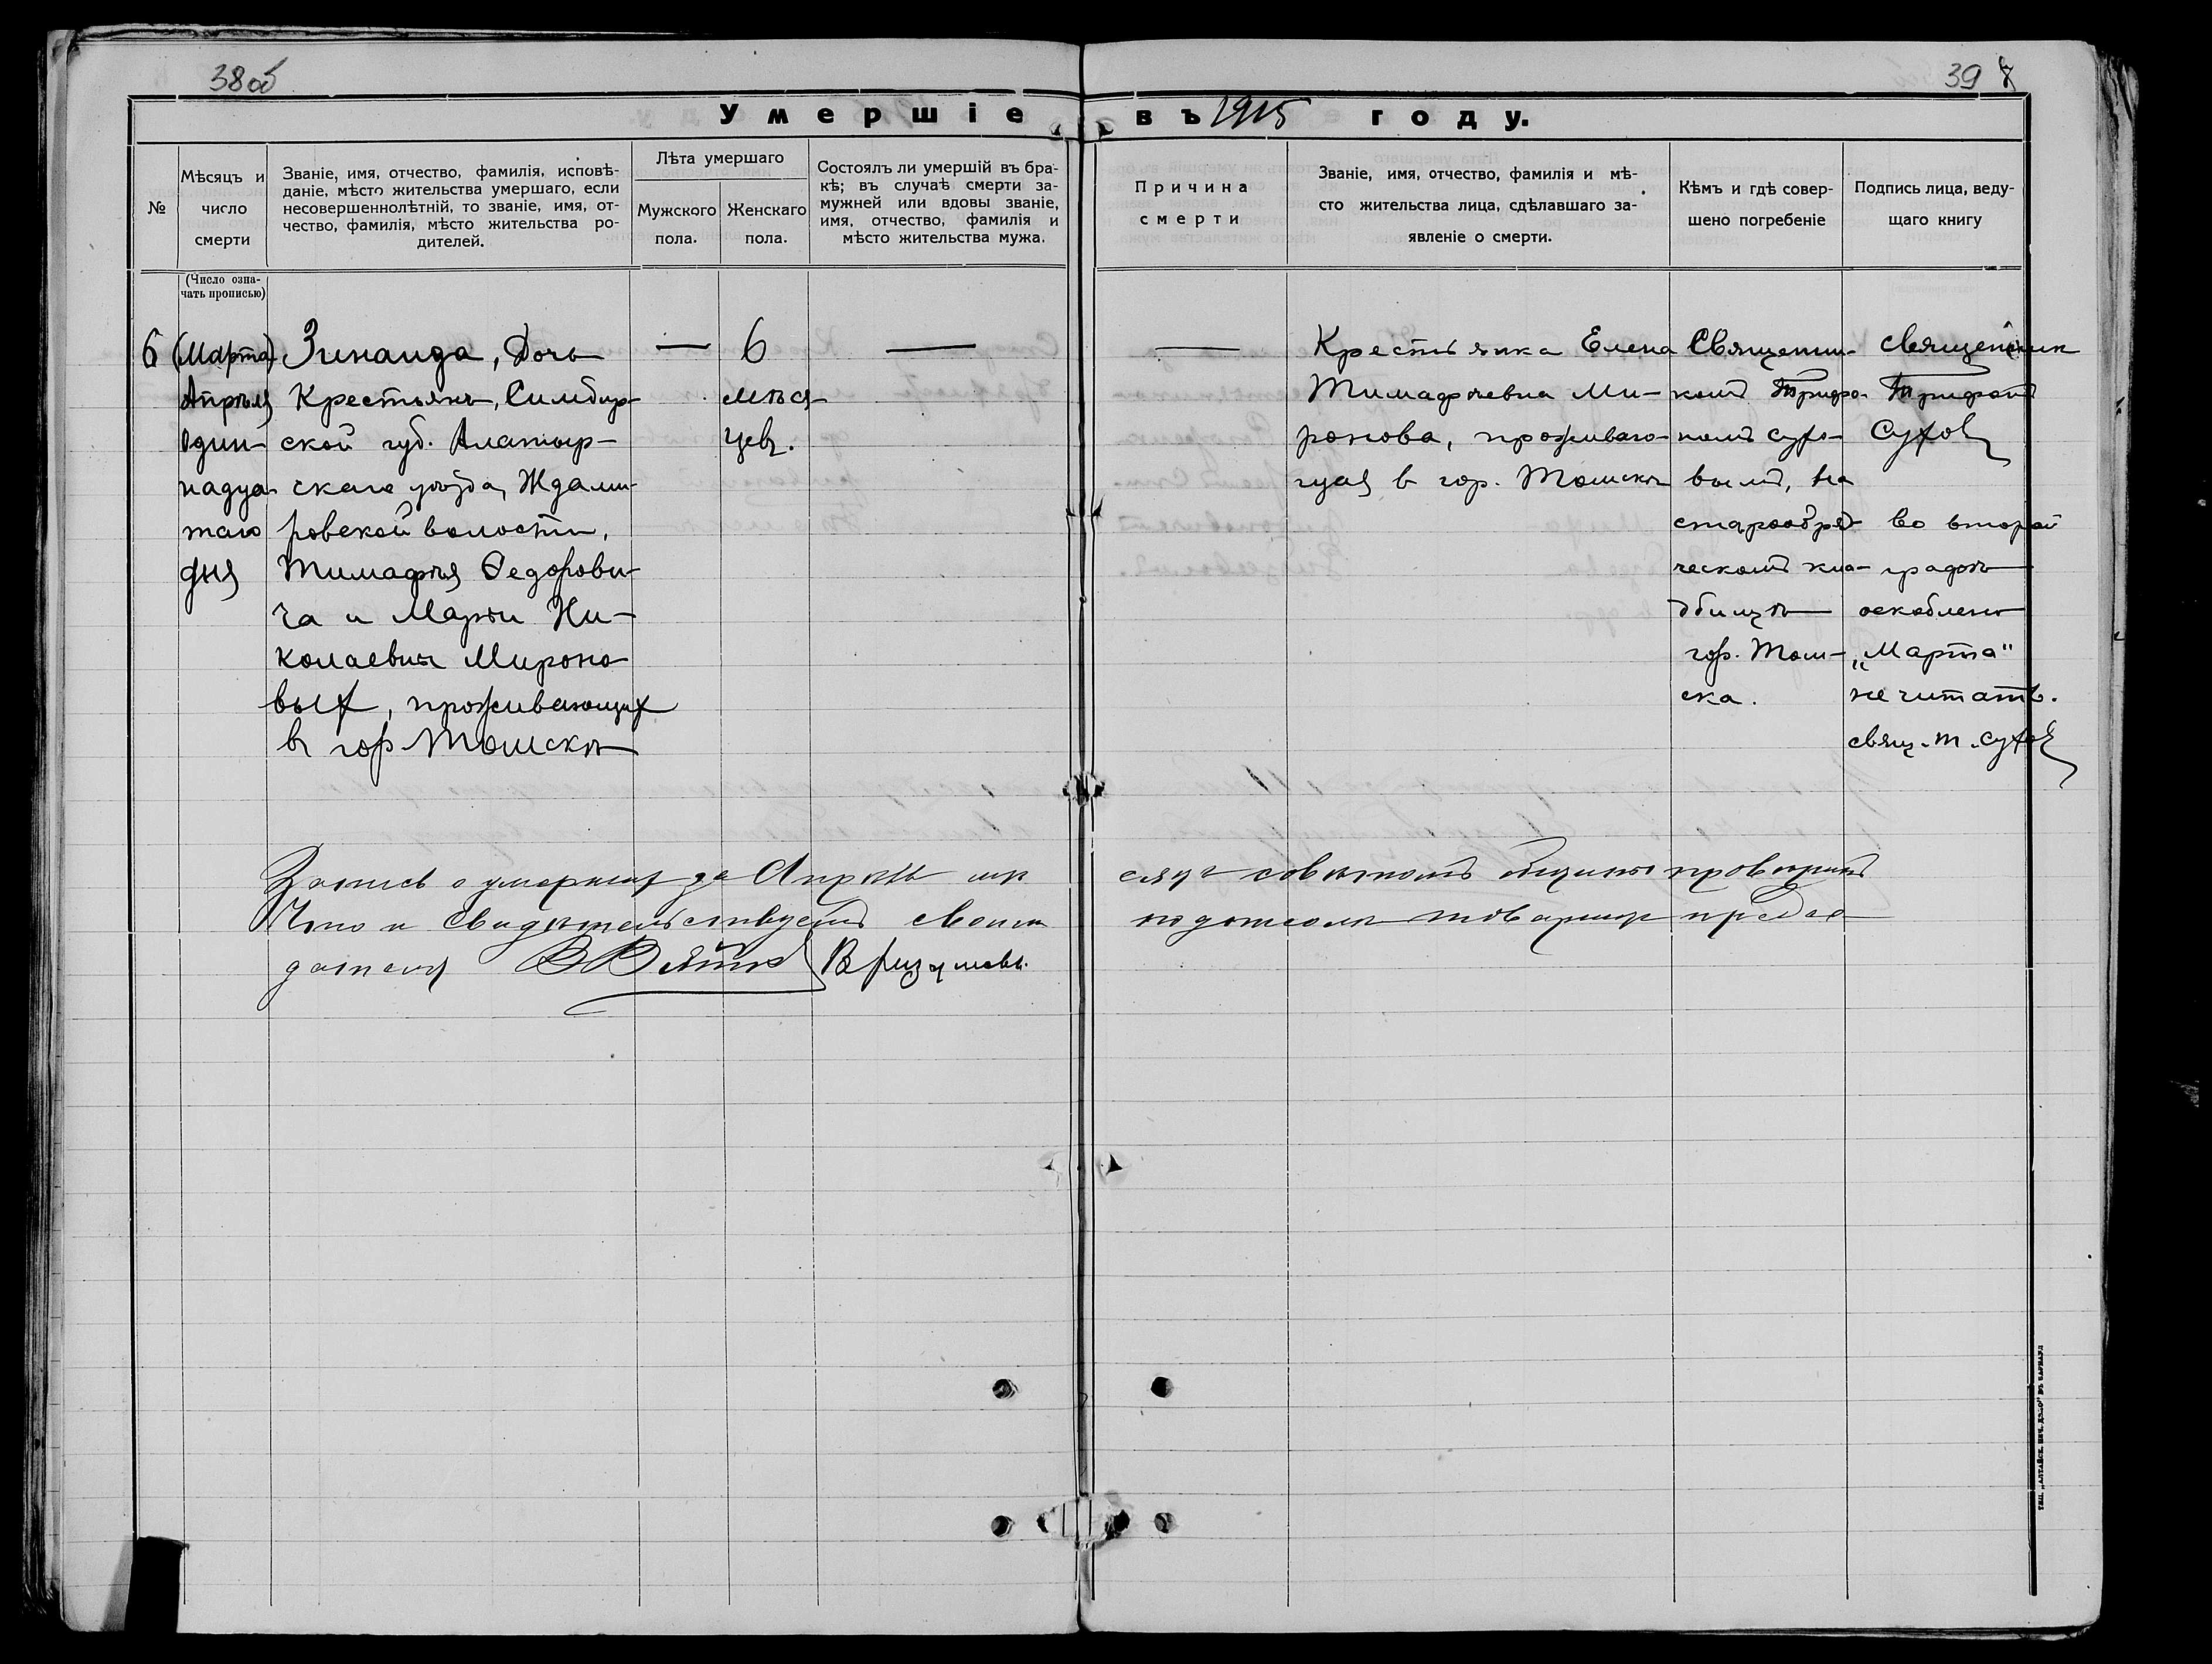 38об
39
Умершіе въ 1915 году.
№
Мѣсяцъ и
число
смерти
Званіе, имя, отчество, фамилія, исповѣ-
даніе, мѣсто жительства умершаго, если
несовершеннолѣтній, то званіе, имя, от-
чество, фамилія, мѣсто жительства ро-
дителей.
Лѣта умершаго
Мужского
пола.
Женскаго
пола.
Состоялъ ли умершій въ бра-
кѣ; въ случаѣ смерти за-
мужней или вдовы званіе,
имя, отчество, фамилія и
мѣсто жительства мужа.
Причина
смерти
Званіе, имя, отчество, фамилія и мѣ-
сто жительства лица, сдѣлавшаго за-
явленіе о смерти.
Кѣмъ и гдѣ совер-
шено погребеніе
Подпись лица, веду-
щаго книгу
(Число озна-
чать прописью)
6
(Марта)
Апрѣля
Один-
надца-
таго
дня
Зинаида, Дочь
Крестьянъ, Симбир-
ской губ. Алатыр-
скаго уѣзда, Ждами-
ровской волости,
Тимафѣя Ѳедорови-
ча и Маріи Ни-
колаевны Мироно-
вых, проживающих
в гор Томскѣ
—
6
мѣся-
цев.
—
—
Крестьянка Елена
Тимафѣевна Ми-
ронова, проживаю-
щая в гор. Томскѣ
Священни-
комъ Трифо-
номъ Сухо-
вымъ, на
старообряд-
ческомъ кла-
дбищѣ
гор. Том-
ска.
Священник
Трифонъ
Сухов
во второй
графѣ
оскоблено
„Марта"
не читать.
свящ. Т. Сухов
Запись о умерших за Апрѣль мѣ сяцъ совѣтомъ общины провѣрена
Что и Свидѣтельствуемъ Своим подписом товарищ предсе
дателя